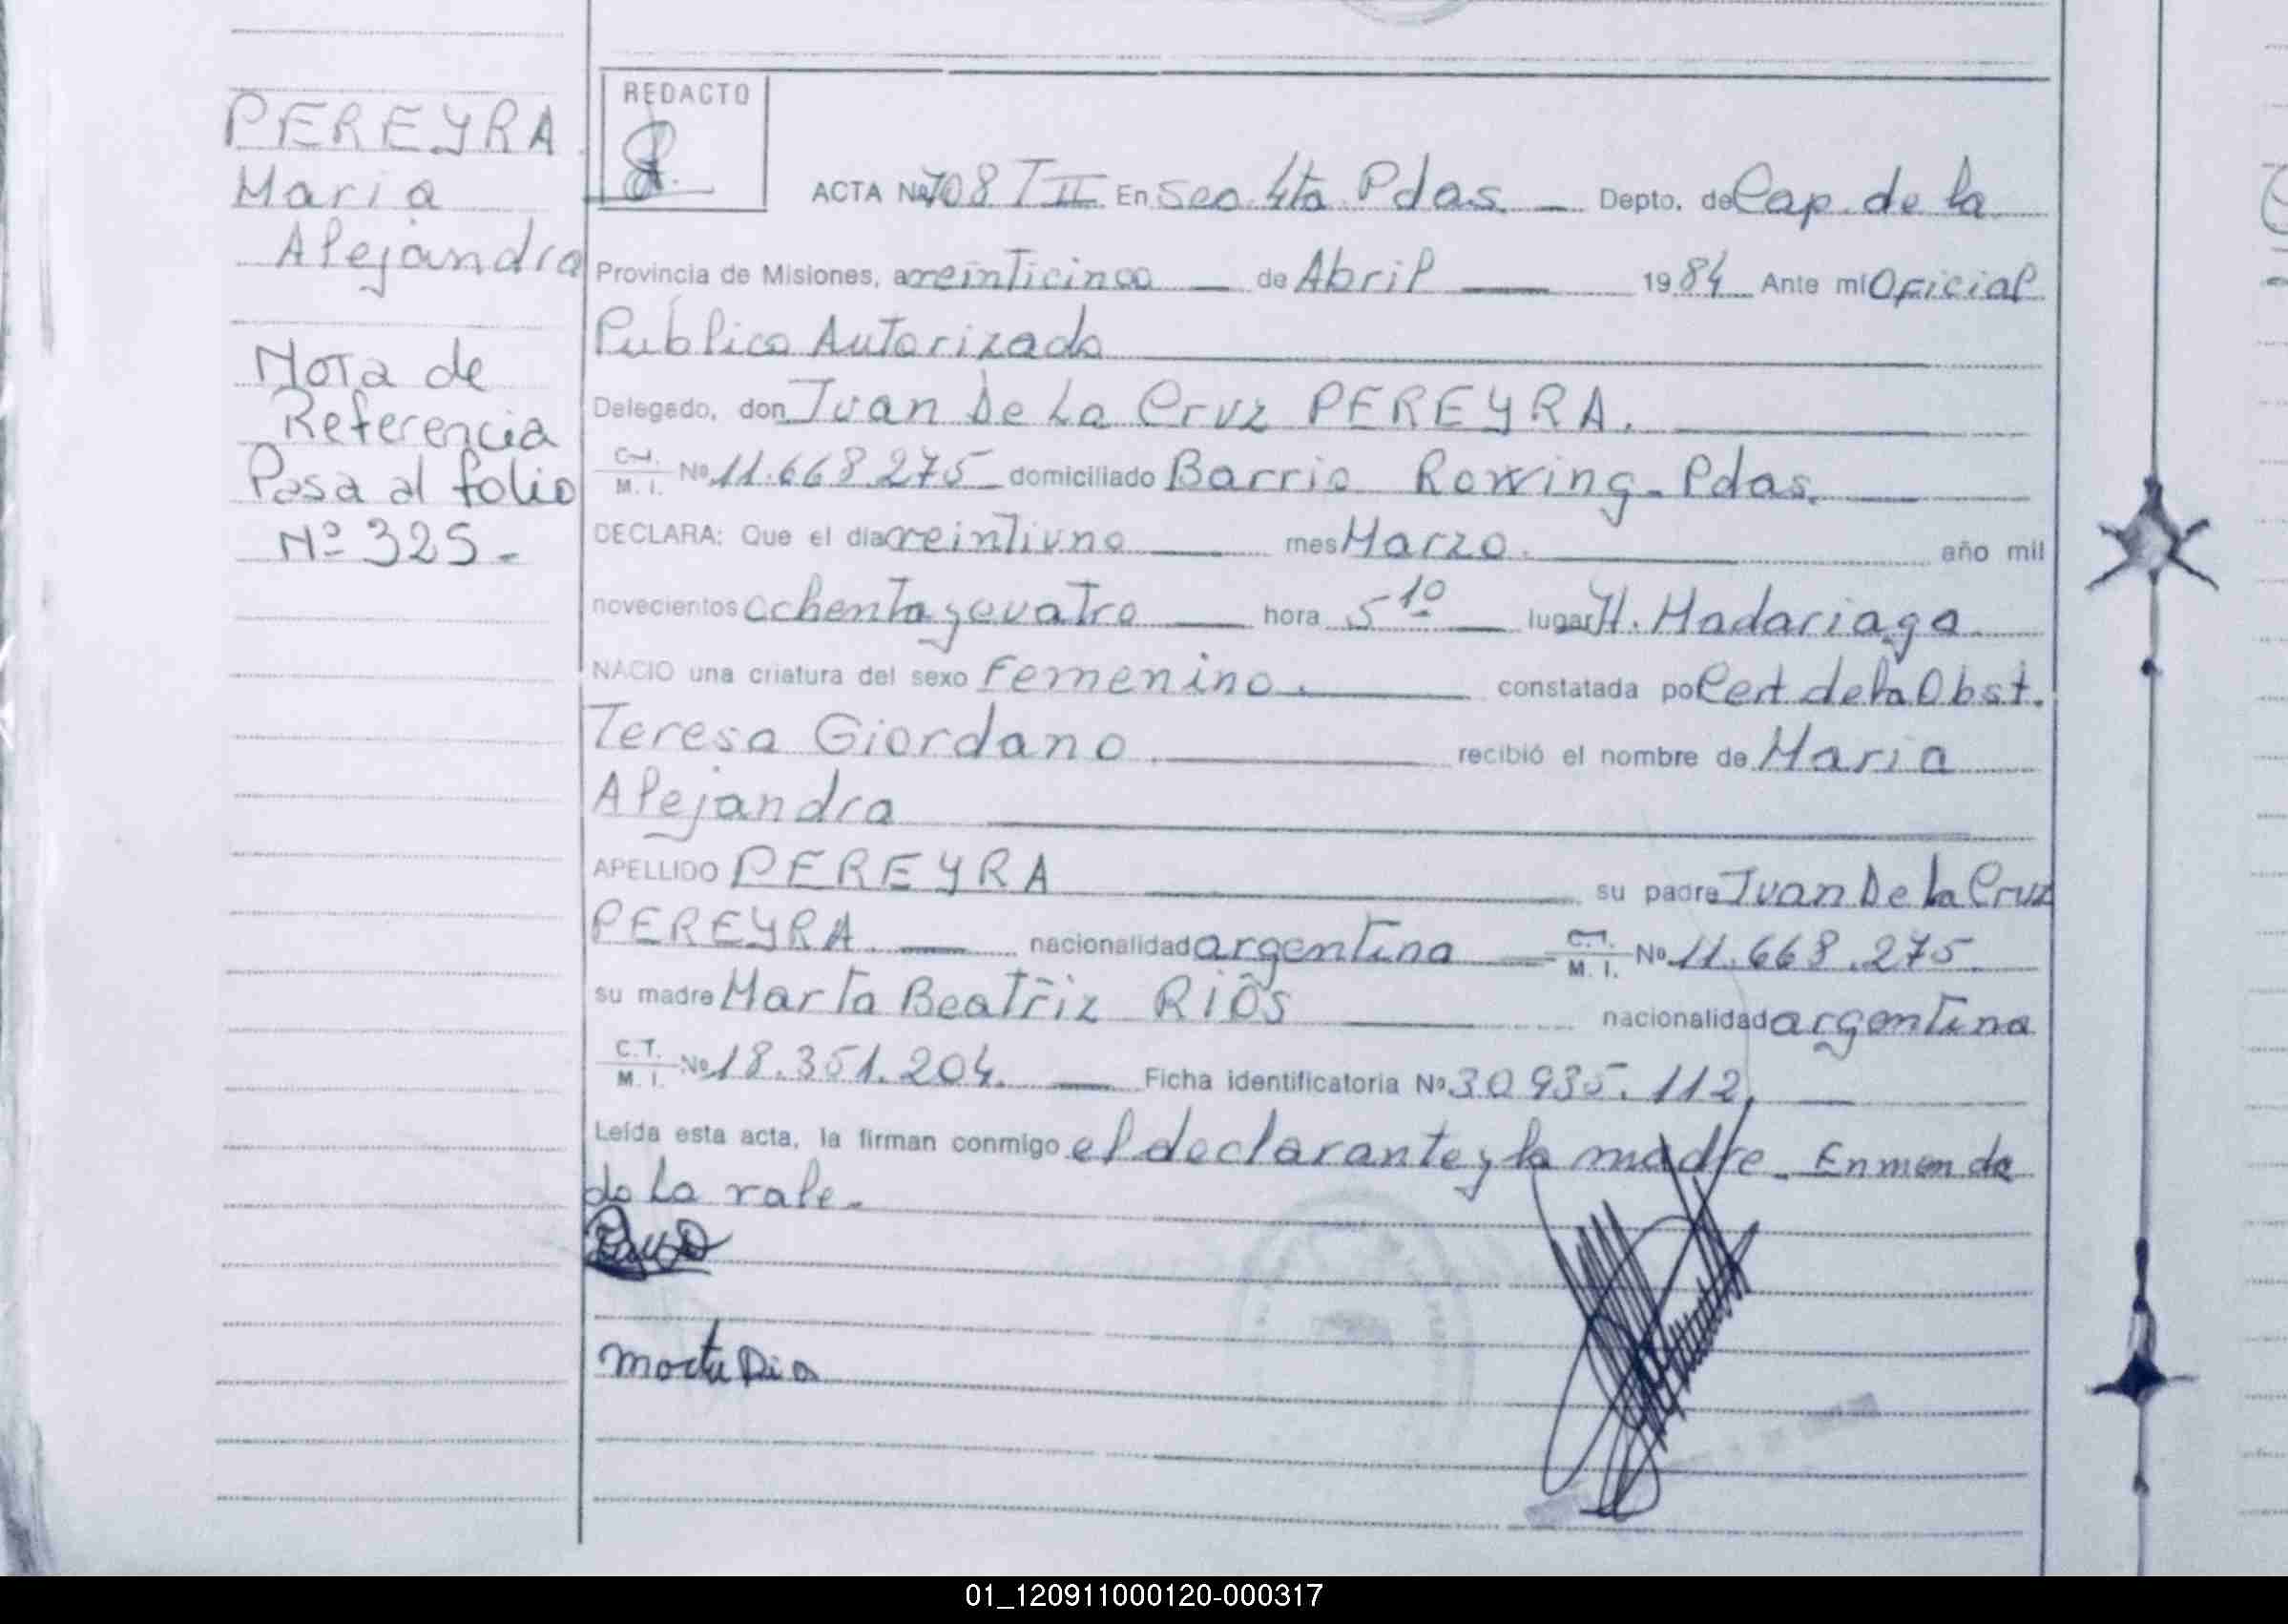 PEREYRA
Maria
Alejandra
Nota de
Referencia
Pasa al folio
Nº 325.-
REDACTO
ACTA Nº 708 T II En Sec. 4ta Pdas. Depto. de Cap. de la
Provincia de Misiones, a veinticinco de Abril 1984 Ante mí Oficial
Público Autorizado
Delegado, don Juan De La Cruz PEREYRA.
C.I. M. I. Nº 11.668.275 domiciliado Barrio Rowing - Pdas.
DECLARA: Que el día veintiuno mes Marzo. año mil
novecientos ochenta y cuatro hora 5 10 lugar H. Madariaga
NACIO una criatura del sexo Femenino. constatada po Cert de la Obst.
Teresa Giordano recibió el nombre de Maria
Alejandra
APELLIDO PEREYRA su padre Juan De La Cruz
PEREYRA. nacionalidad argentina C.I. M. I. Nº 11.668.275
su madre Marta Beatriz RIOS nacionalidad argentina
C.T. M. I. Nº 18.351.204. Ficha identificatoria Nº 30.935.112,
Leída esta acta, la firman conmigo el declarante y la madre. Enmenda
do La vale.-
Marta Rio
01_120911000120-000317